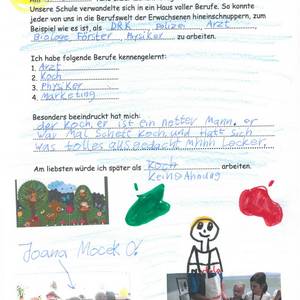 Unsere Schule verwandelte sich in ein Haus voller Berufe. So konnte
jeder von uns in die Berufswelt der Erwachsenen hineinschnuppern, zum
Beispiel wie es ist, als DRK Polizei, Arzt
Biologe Förster, Physiker zu arbeiten.
Ich habe folgende Berufe kennengelernt:
1. Arzt
2. Koch
3. Physiker
4. Marketing
Besonders beeindruckt hat mich:
der Koch, er ist ein netter Mann. er
war Mal Schef koch und Hatt sich
was tolles ausgedacht Mhhh Lecker.
Am liebsten würde ich später als Koch arbeiten.
Keine Ahnung
Joana Mocek